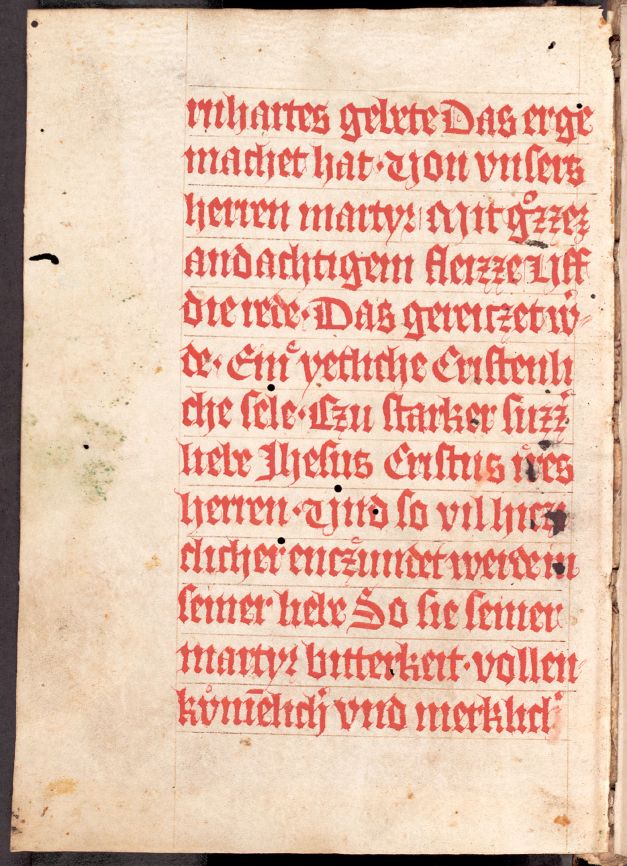 rnhartes gebete Das er ge
machet hat · Von vnsers
herren martyr Mit gͦzzez
andachtigem fleizze Uff
die rede · Das gereiczet w̓
de · Ein̓ yetliche Cristenli
che sele · Czu starker suzz̓
liebe Jhesus Cristus vn̓s̓es
herren · Vnd so vil hicz
clicher enczundet werde in
seiner liebe So sie seiner
martyr bitterkeit · vollen
kom̅elich̓ vnd merklich̓